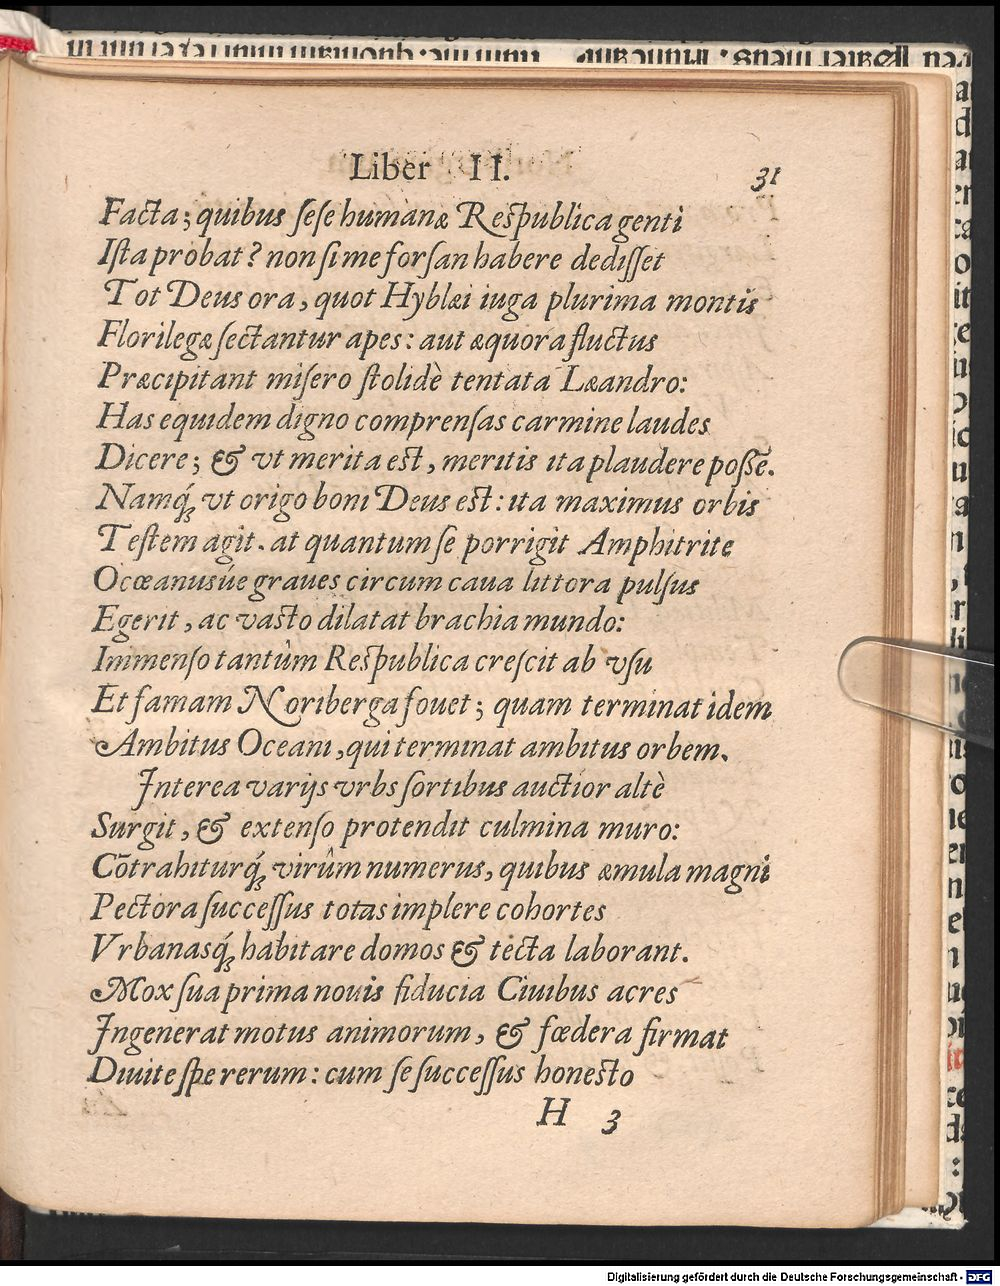 Liber II. 31
Facta; quibus ſeſe humanæ Reſpublica genti
Iſta probat? non ſi me forſan habere dediſſet
Tot Deus ora, quot Hyblæi iuga plurima montis
Florilegæ ſectantur apes: aut æquora fluctus
Præcipitant miſero ſtolidè tentata Læandro:
Has equidem digno comprenſas carmine laudes
Dicere; & vt merita eſt, meritis ita plaudere poſſē.
Namq́ꝫ vt origo boni Deus eſt: ita maximus orbis
Teſtem agit. at quantum ſe porrigit Amphitrite
Ocœanusúe graues circum caua littora pulſus
Egerit, ac vaſto dilatat brachia mundo:
Immenſo tantùm Reſpublica creſcit ab vſu
Et famam Noriberga fouet; quam terminat idem
Ambitus Oceani, qui terminat ambitus orbem.
Interea varijs vrbs ſortibus auctior altè
Surgit, & extenſo protendit culmina muro:
Cōtrahiturq́ꝫ virûm numerus, quibus æmula magni
Pectora ſucceſſus totas implere cohortes
Vrbanasq́ꝫ habitare domos & tecta laborant.
Mox ſua prima nouis fiducia Ciuibus acres
Ingenerat motus animorum, & fœdera firmat
Diuite ſpe rerum: cum ſe ſucceſſus honeſto
H 3
Digitalisierung gefördert durch die Deutsche Forschungsgemeinschaft - DFG